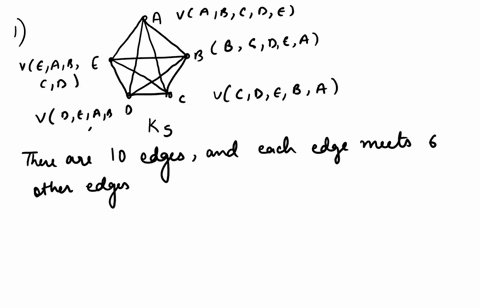 1)
A V(A,B,C,D,E)
B (B, C, D, E, A)
V(E,A,B, E
C,D)
C V(C,D,E,B,A)
D
V(D,E,A,B
K5
There are 10 edges, and each edge meets 6
other edges